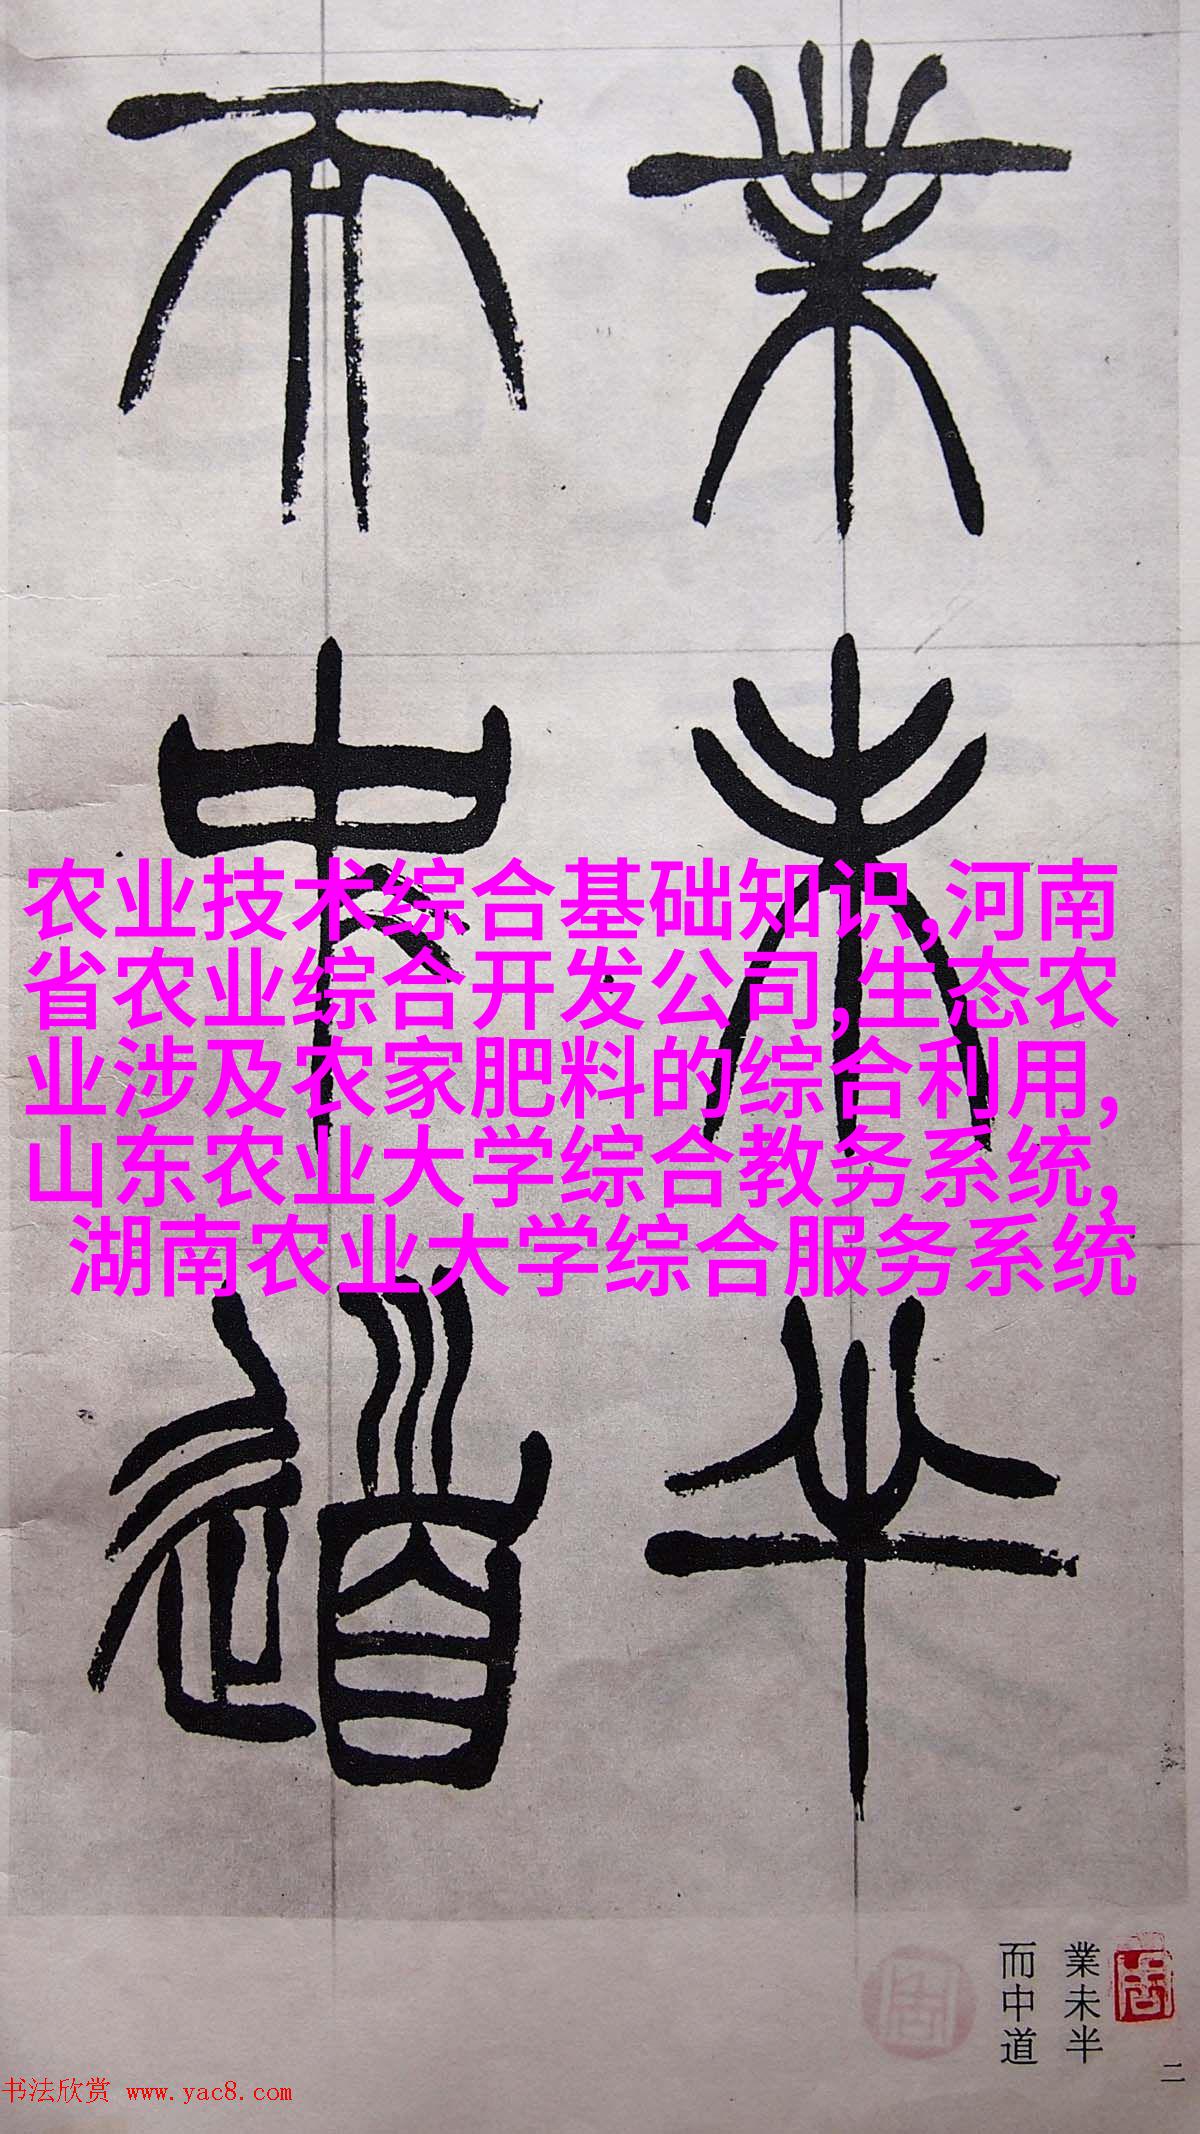 業未半
而中道
农业技术综合基础知识,河南
省农业综合开发公司,生态农
业涉及农家肥料的综合利用,
山东农业大学综合教务系统,
湖南农业大学综合服务系统
業未半
而中道
二
书法欣赏 www.yac8.com